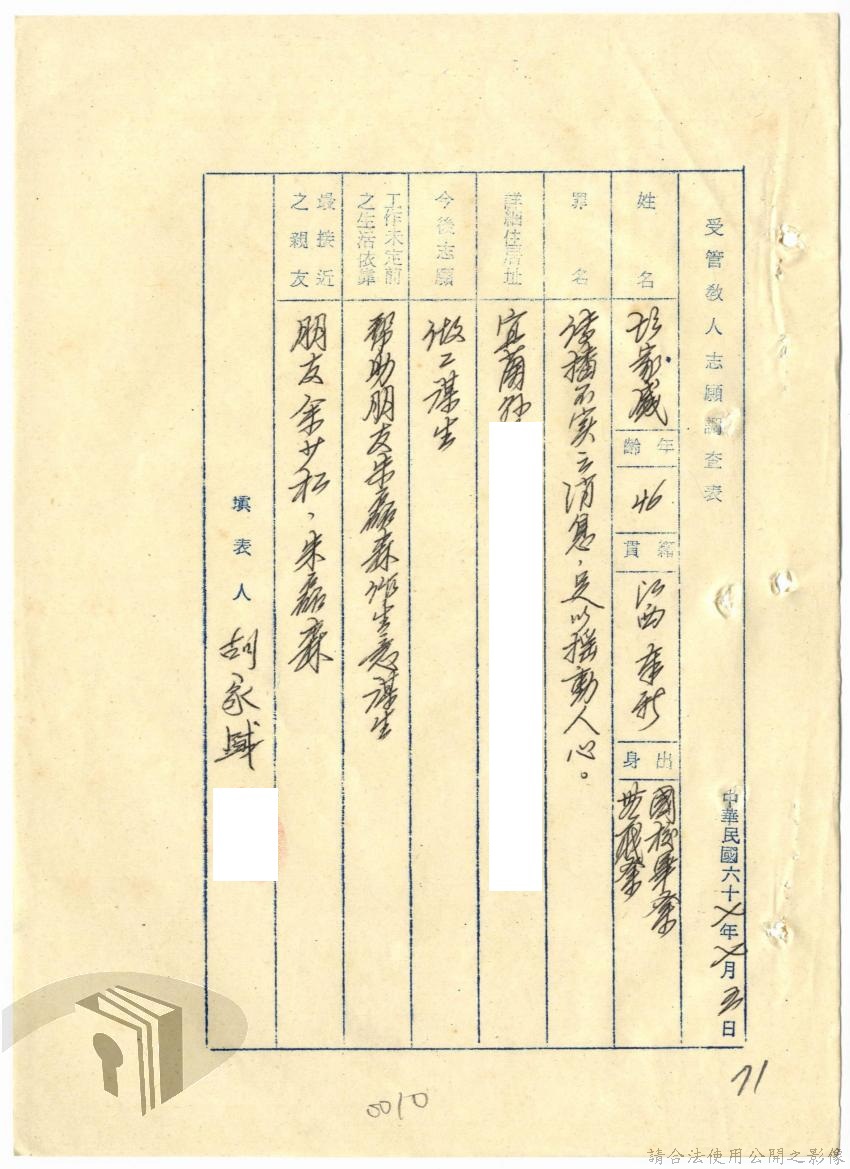 受管教人志願調查表
中華民國六十七年七月五日
姓名
胡家盛
年齡
46
籍貫
江西奉新
出身
國校畢業
無職業
罪名
傳播不实之消息,足以摇動人心。
詳細住居址
宜蘭縣
今後志願
做工謀生
工作未定前之生活依靠
帮助朋友朱磊森作生意謀生
最接近之親友
朋友余少松、朱磊森
填表人
胡家盛
71
0010
請合法使用公開之影像